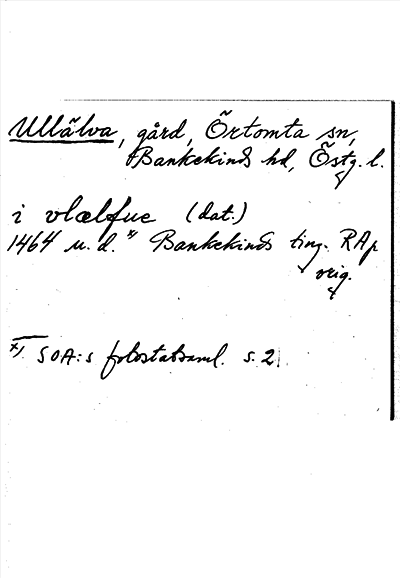 Ullälva, gård, Örtomta sn,
Bankekinds hd, Östg. l.
i vlælfue (dat.)
1464 u. d. x) Bankekinds ting. RAp
orig.
x) SOA:s fotostatsaml. s. 2.